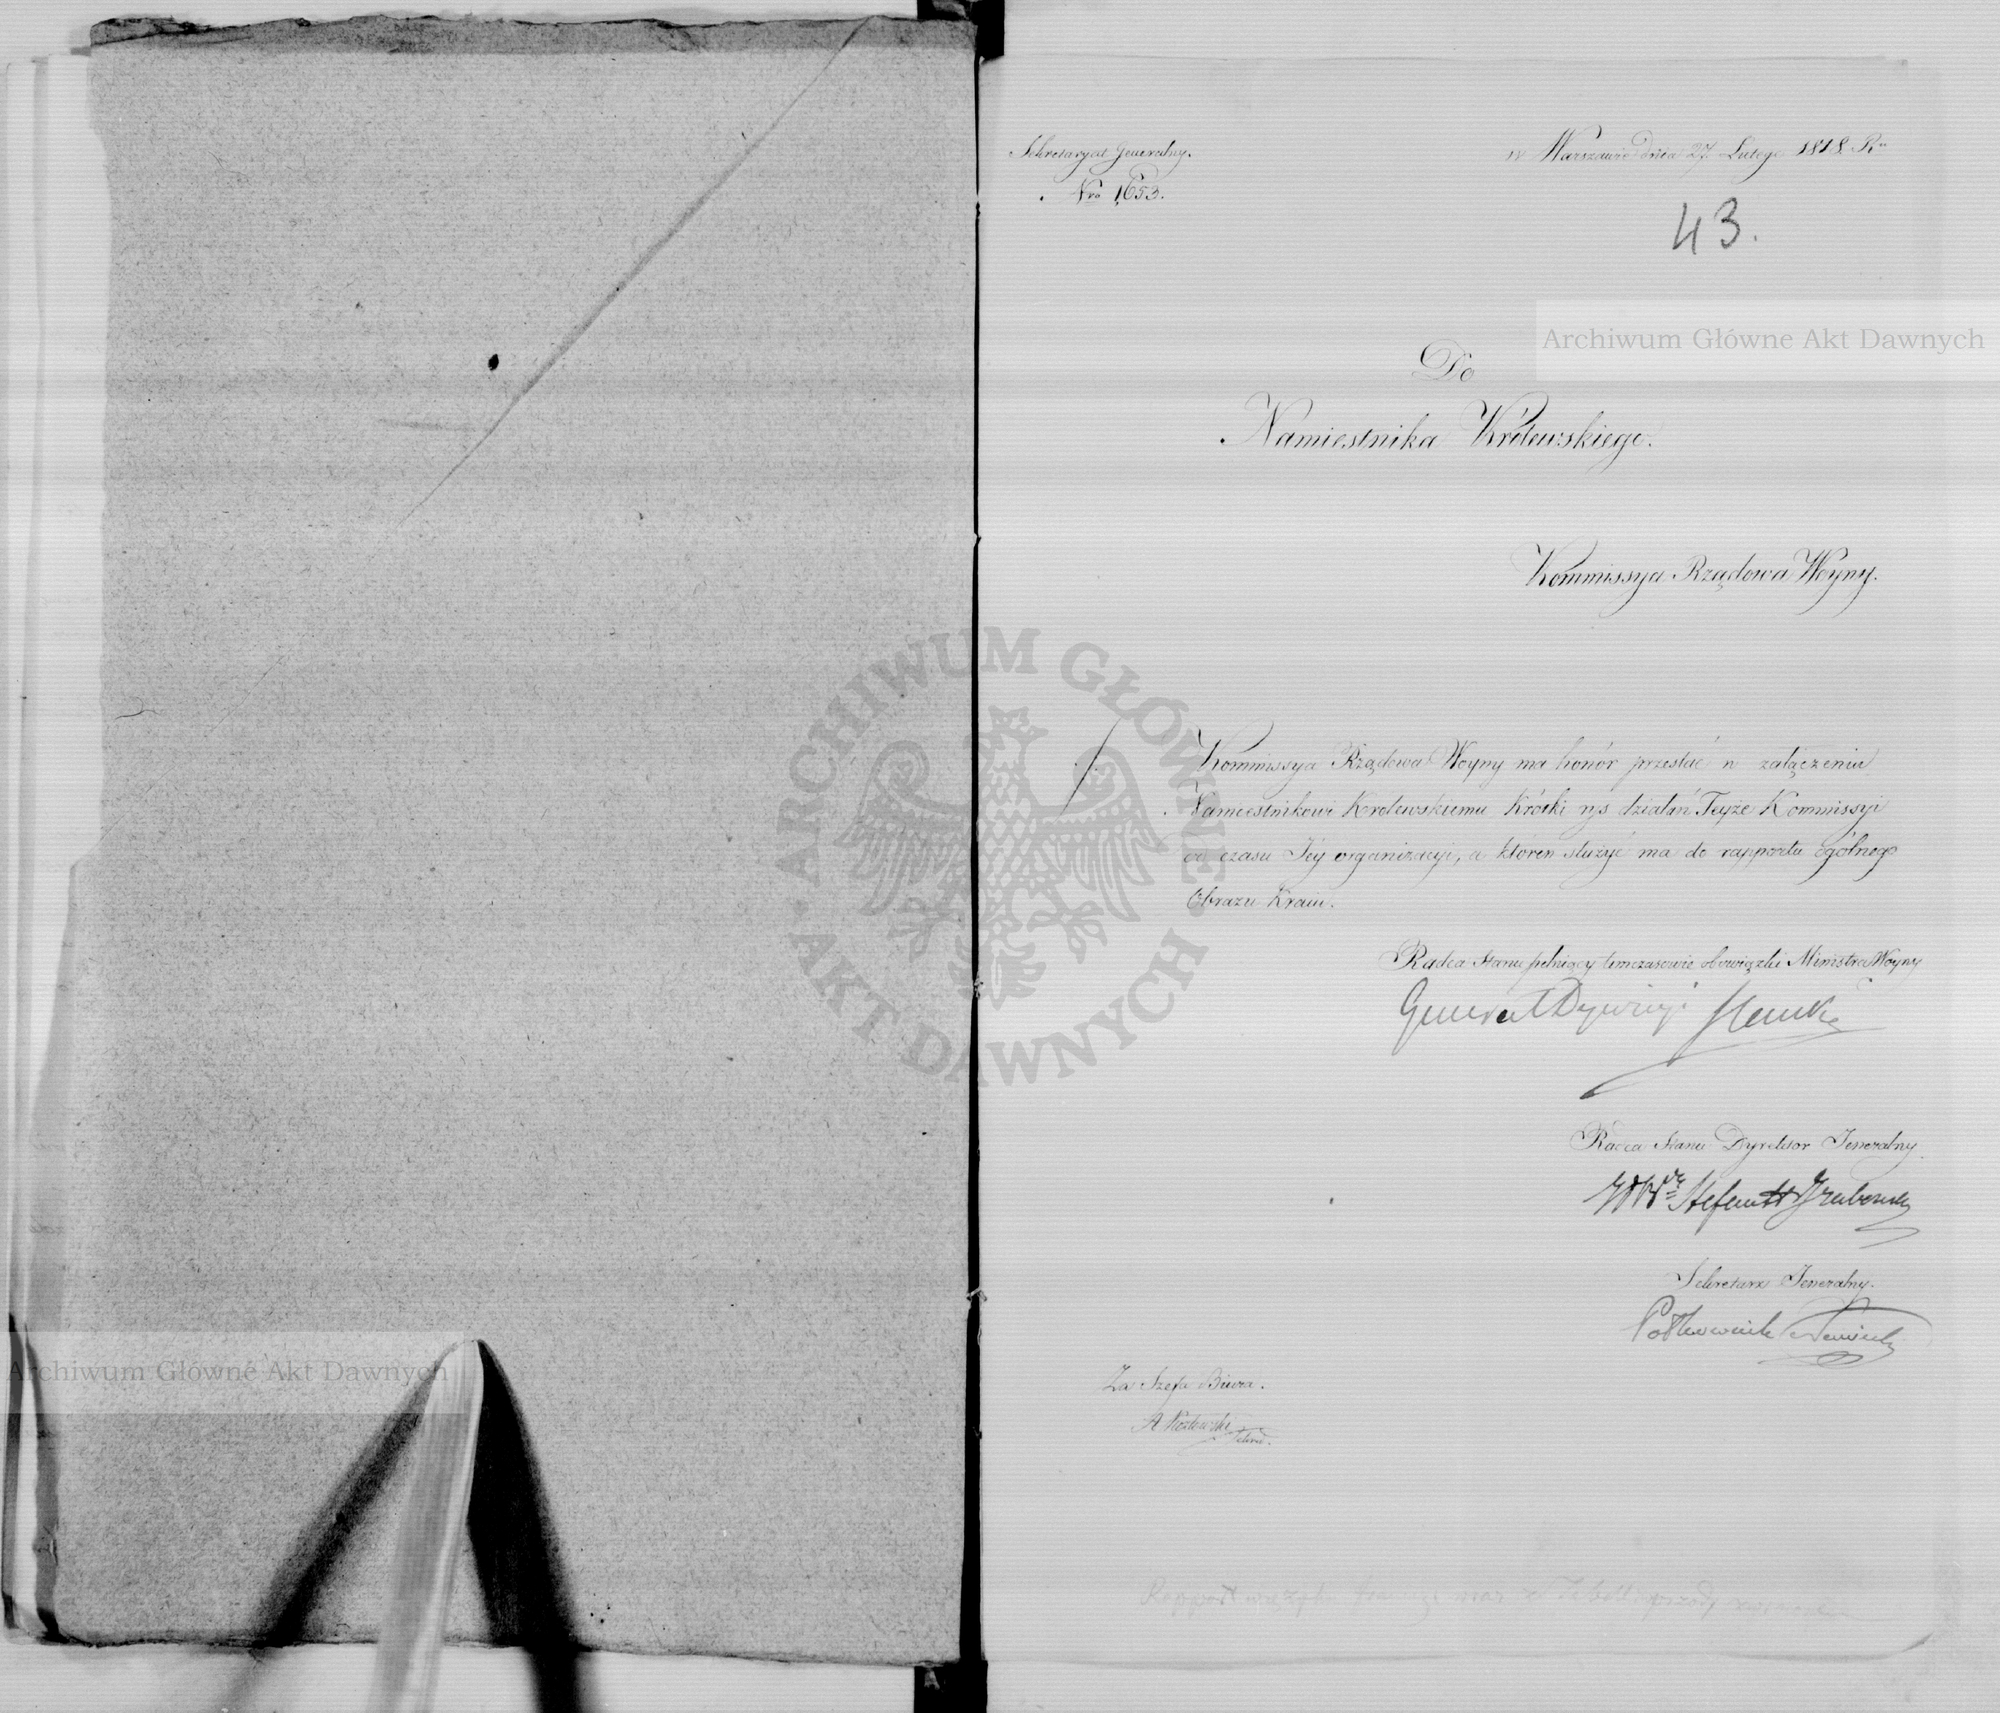 Sekretaryat Generalny.
Nro 1,653.
w Warszawie dnia 27 Lutego 1818 Ru
43.
Do
Namiestnika Królewskiego.
Kommissya Rządowa Woyny.
Kommissya Rządowa Woyny ma honór przesłać w załączeniu
Namiestnikowi Królewskiemu krótki rys działań Teyże Kommissyi
od czasu Jey organizacyi, a któren służyć ma do rapportu ogólnego
Obrazu Kraiu.
Radca Stanu pełniący tymczasowie obowiązki Ministra Woyny
Generał Dywizyi Hauke
Radca Stanu Dyrektor Jeneralny
Stefan Grabowski
Sekretarz Jeneralny.
Półkownik
Za Szefa Biura.
A Kozłowski
Rapport w języku
Archiwum Główne Akt Dawnych
Archiwum Główne Akt Dawnych
ARCHIWUM GŁÓWNE
AKT DAWNYCH